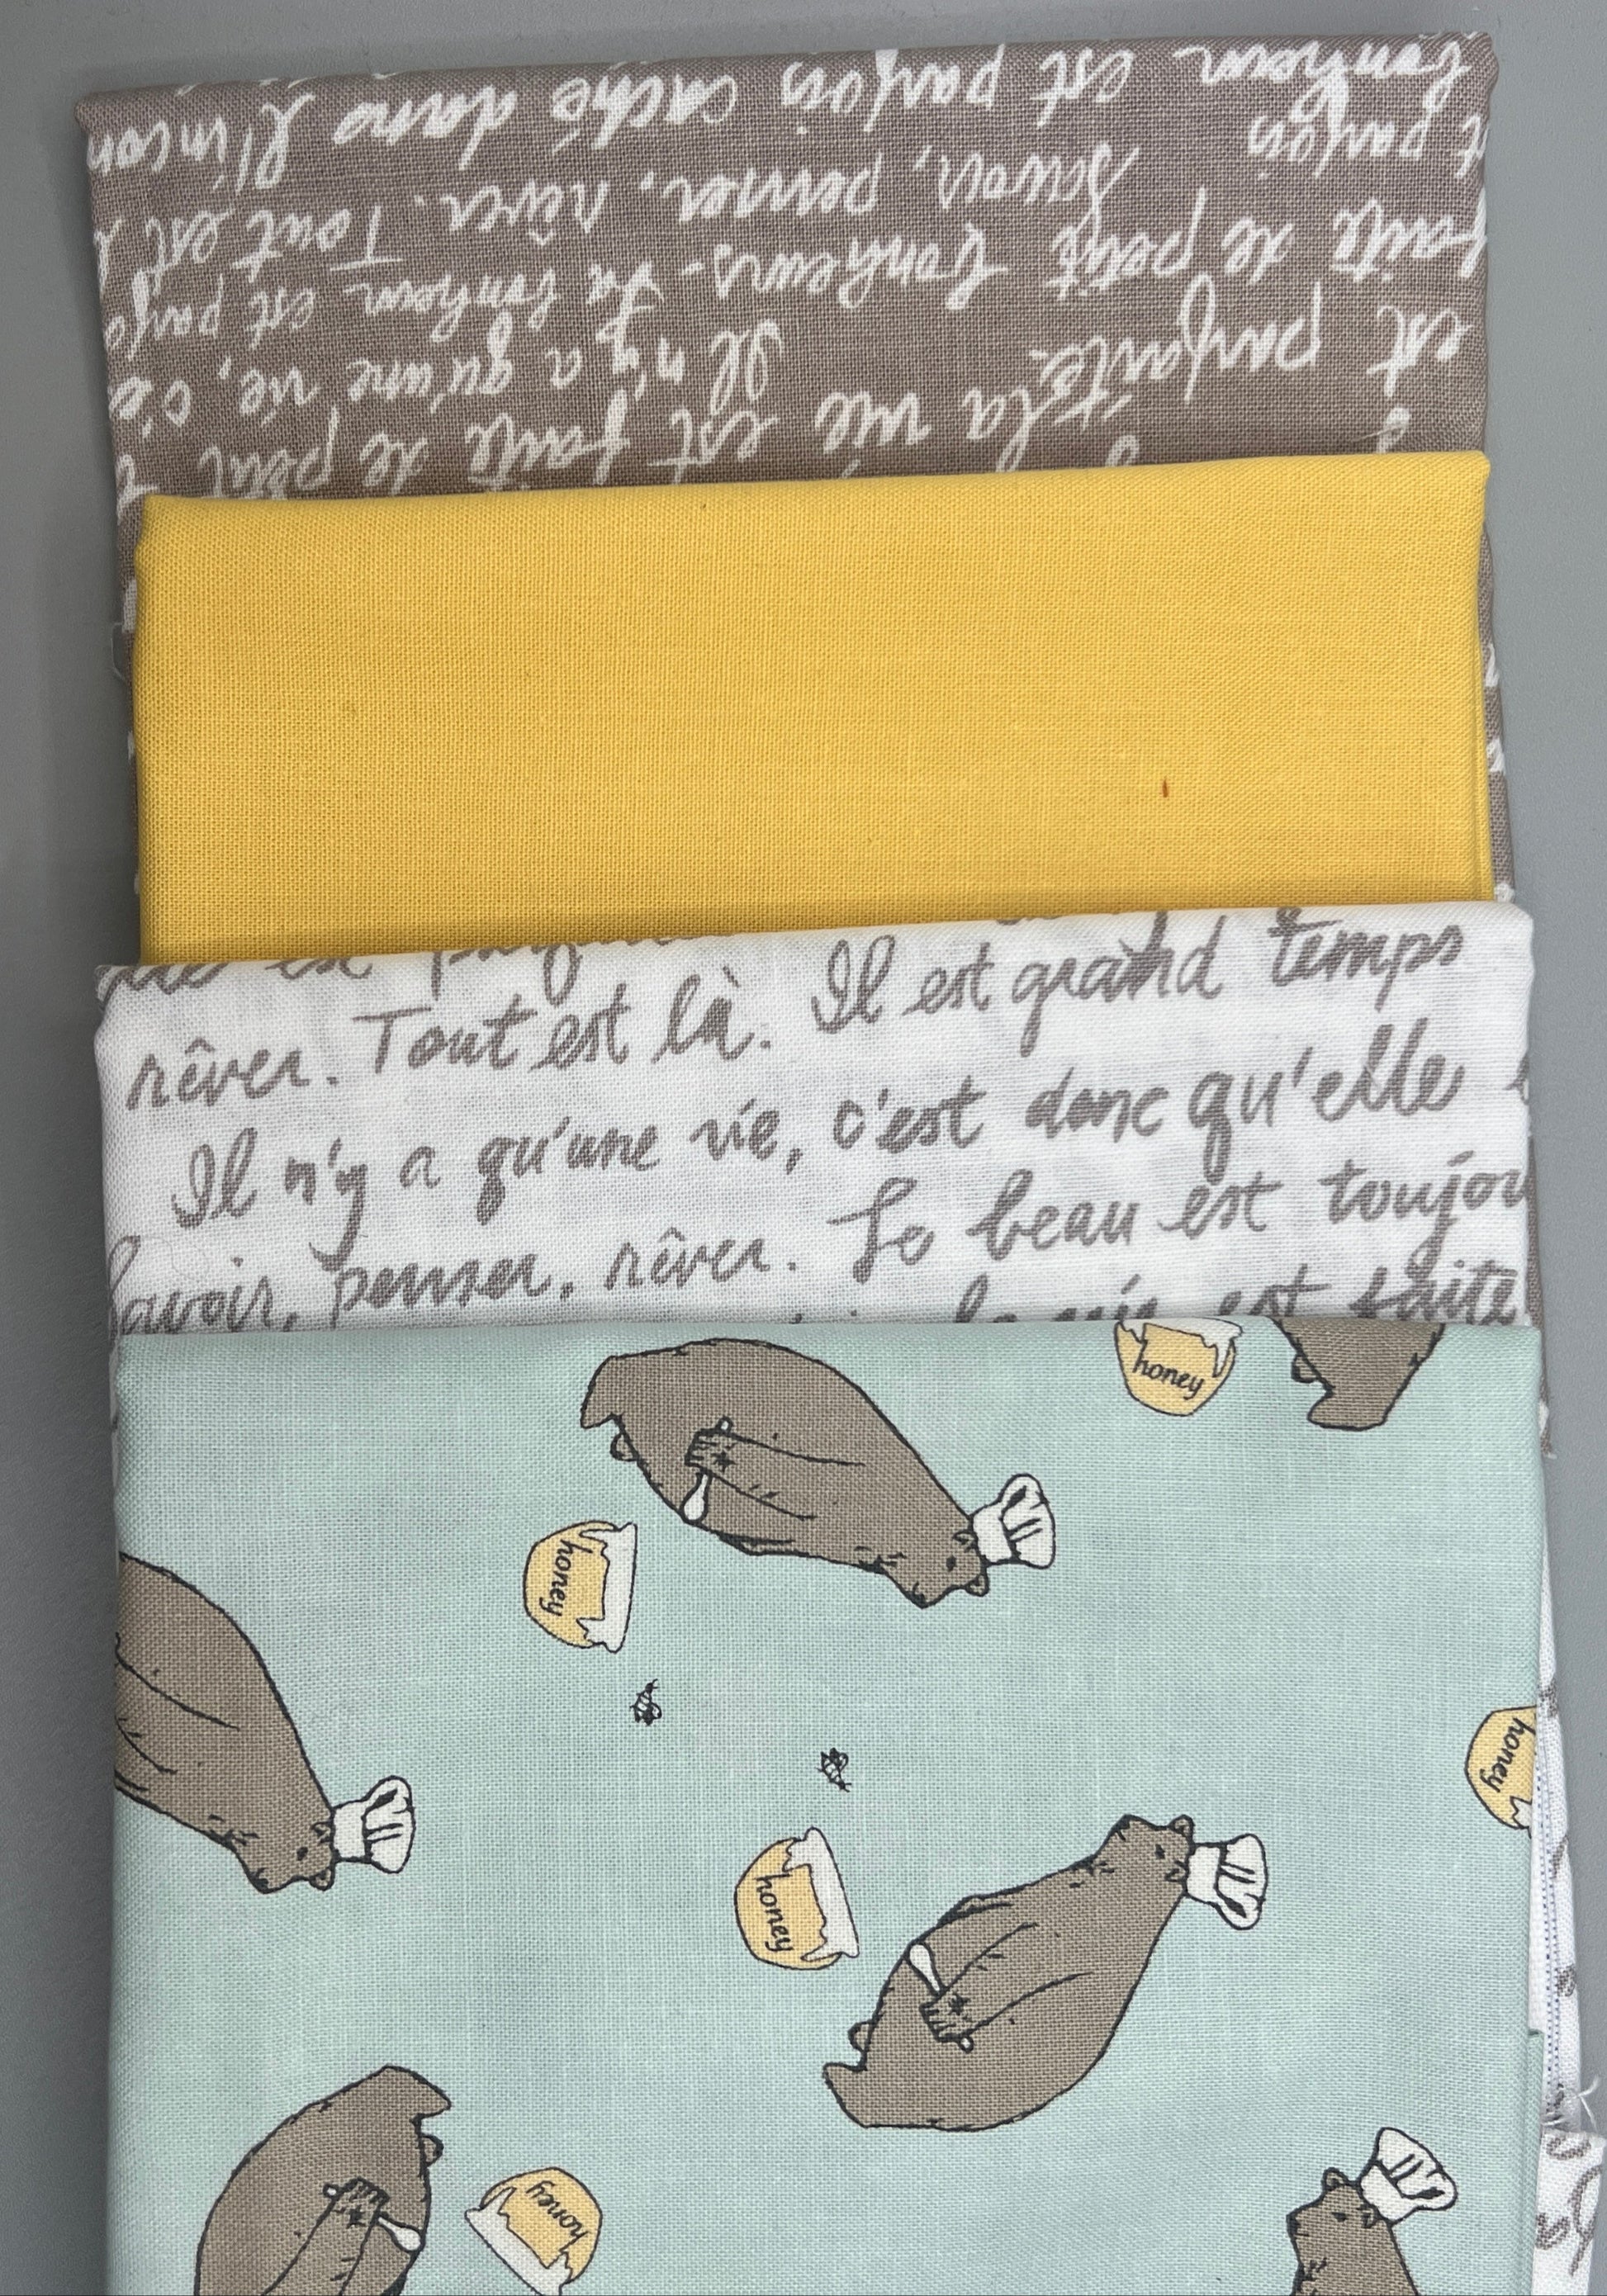 la vie est faite de petit
est parfaite. Il n'y a qu'une vie, c'e
faite de petit bonheurs. Le bonheur est parfo
t parfois Savoir, penser, rêver. Tout est l
bonheur est parfois caché dans l'incon
est
rêver. Tout est là. Il est grand temps
Il n'y a qu'une vie, c'est donc qu'elle
Savoir, penser, rêver. Le beau est toujou
la vie est faite
honey
honey
honey
honey
honey